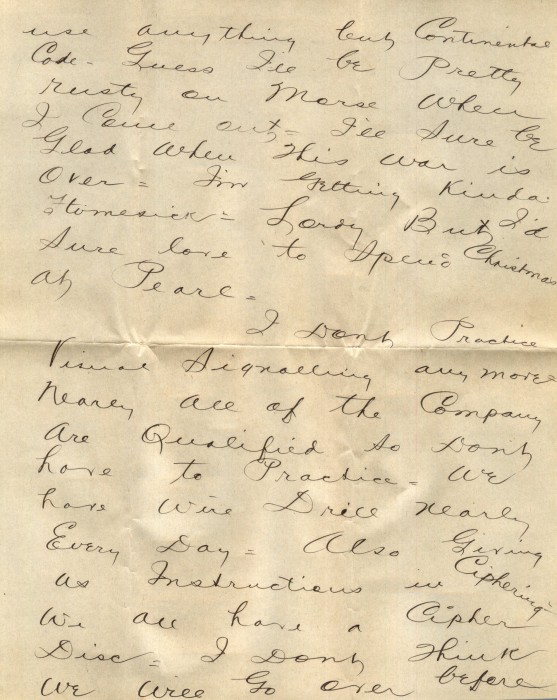 use anything but Continental
Code - Guess I'll be Pretty
rusty on Morse When
I Come out = I'll Sure be
Glad When this war is
Over = I'm getting Kinda
Homesick = Lordy But I'd
Sure love to Spend Christmas
at Pearl =
I Dont Practice
Visual Signalling any more =
Nearly all of the Company
are Qualified so Dont
have to Practice = We
have Wire Drill nearly
Every Day = Also Giving
us Instructions in Ciphering -
We all have a Cipher
Disc = I Dont think
We Will Go over before